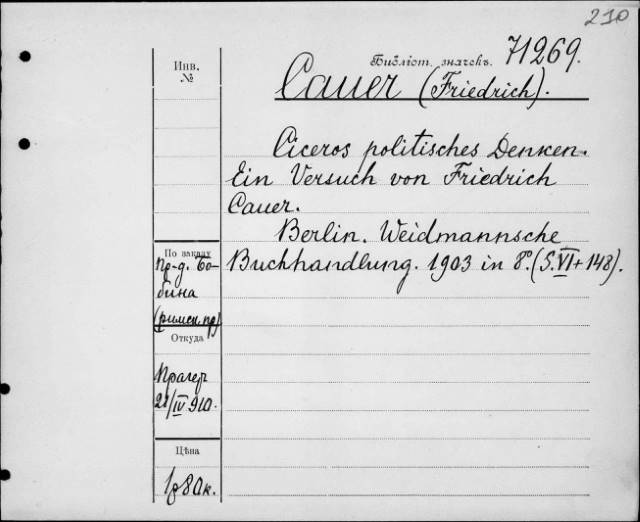 210
Инв.
№
Библіот. значекъ. 71269.
Cauer (Friedrich).
Ciceros politisches Denken.
Ein Versuch von Friedrich
Cauer.
Berlin. Weidmannsche
Buchhandlung. 1903 in 8º. (S. VI + 148).
По заказу
Пр-д. Бо-
бина
(римск. пр)
Откуда
Прагер
21/IV 910.
Цѣна
1р 80к.